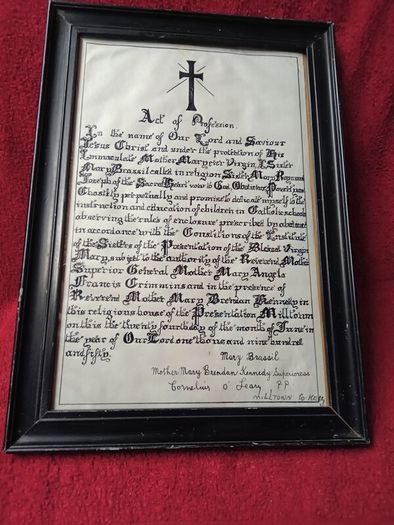 Act of Profession.
In the name of Our Lord and Saviour
Jesus Christ and under the protection of His
Immaculate Mother Mary ever Virgin, I, Sister
Mary Brassil called in religion Sister Mary Raymond
Joseph of the Sacred Heart vow to God, Obedience, Poverty and
Chastity perpetually and promise to dedicate myself to the
instruction and education of children in Catholic schools
observing the rules of enclosure prescribed by
in accordance with the Constitutions of the Institute
of the Sisters of the Presentation of the Blessed Virgin
Mary, subject to the authority of the Reverend Mother
Superior General Mother Mary Angela
Francis Crimmins and in the presence of
Reverend Mother Mary Brendan Kennedy in
this religious house of the Presentation Milltown
on this the twenty fourth day of the month of June in
the year of Our Lord one thousand nine hundred
and fifty.
Mary Brassil
Mother Mary Brendan Kennedy Superioress
Cornelius O'Leary P.P
Milltown Co Kerry